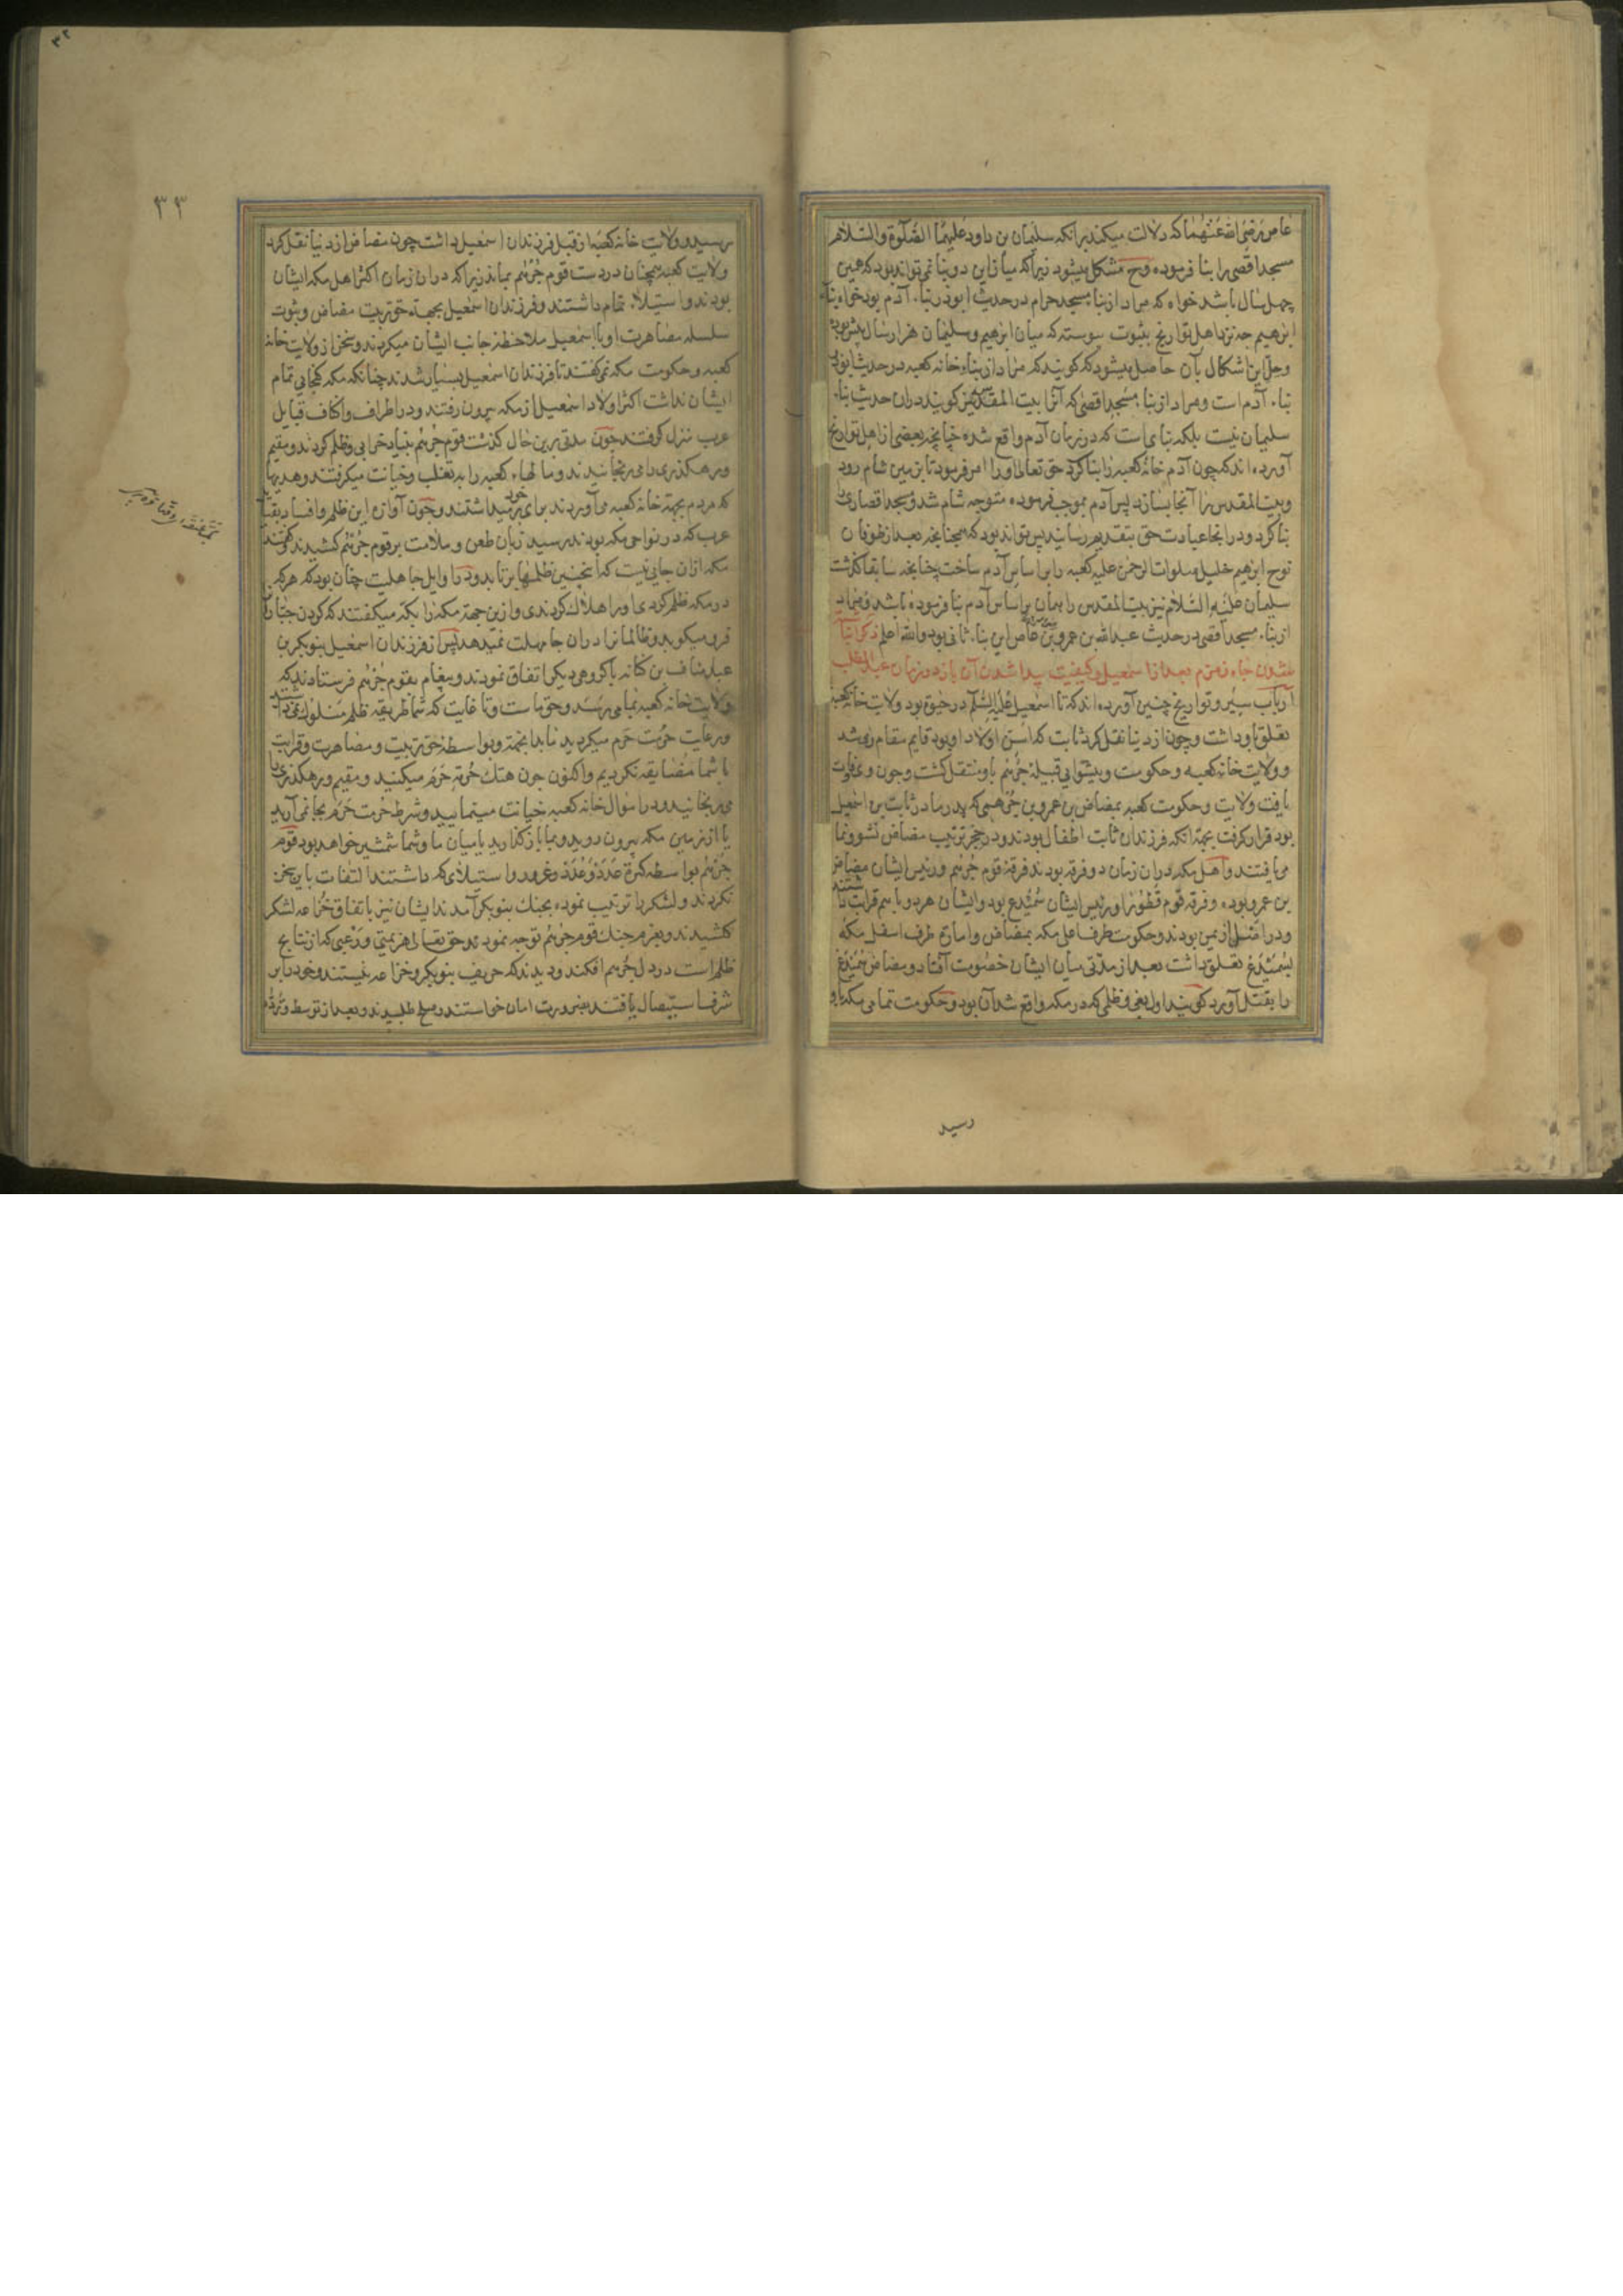 عاص رضی الله عنهما که دلالت میکند برانکه سلیمان بن داود علیهما الصلوة والسلام
مسجد اقصی را بنا فرموده وح مشکل میشود زیراکه میان این دو بنا نمی تواند بود که همین
چهل سال باشد خواه که مراد از بناء مسجد حرام در حدیث ابوذر بناء آدم بود خواه بناء
ابرهیم چه نزد اهل تواریخ بثبوت پیوسته که میان ابرهیم وسلیمان هزار سال بیش بوده
وحل این اشکال بآن حاصل میشود که گویند که مراد از بناء خانه کعبه در حدیث ابوذر
بناء آدم است ومراد از بناء مسجد اقصی که آنرا بیت المقدس نیز گویند دران حدیث بناء
سلیمان نیست بلکه بنای است که در زمان آدم واقع شده چنانچه بعضی از اهل تواریخ
آورده اند که چون آدم خانه کعبه را بنا کرد حق تعالی اورا امر فرمود تا بزمین شام رود
وبیت المقدس را آنجا بسازد پس آدم بموجب فرموده متوجه شام شد ومسجد اقصی را
بنا کرد ودر انجا عبادت حق بتقدیم رسانید پس تواند بود که همچنانچه بعد از طوفان
نوح ابرهیم خلیل صلوات الرحمن علیه کعبه را بر اساس آدم ساخت چنانچه سابقا گذشت
سلیمان علیه السلام نیز بیت المقدس را بهمان بر اساس آدم بنا فرموده باشد ومراد
از بناء مسجد اقصی در حدیث عبدالله بن عمرو بن عاص این بناء ثانی بود والله اعلم ذکر انباشته
شدن چاه زمزم بعد از اسمعیل وکیفیت پیدا شدن آن باز در زمان عبدالمطلب
ارباب سیر وتواریخ چنین آورده اند که تا اسمعیل علیه السلام در حیوة بود ولایت خانه کعبه
تعلق باو داشت وچون از دنیا نقل کرد ثابت که اسن اولاد او بود قایم مقام وی شد
وولایت خانه کعبه وحکومت وپیشوایی قبیله جرهم باو منتقل گشت وچون وی وفات
یافت ولایت وحکومت کعبه بمضاض بن عمرو بن جرهمی که پدر مادر ثابت بن اسمعیل
بود قرار گرفت بجهة انکه فرزندان ثابت اطفال بودند ودر حجر تربیت مضاض نشو ونما
می یافتند واهل مکه دران زمان دو فرقه بودند فرقه قوم جرهم ورئیس ایشان مضاض
بن عمرو بوده وفرقه قوم قطورا ورئیس ایشان سمیدع بود وایشان هر دو با هم قرابت داشتند
ودر اصل از یمن بودند وحکومت طرف اعلی مکه بمضاض واما رتبه طرف اسفل مکه
بسمیدع تعلق داشت بعد از مدتی میان ایشان خصومت افتاد ومضاض سمیدع
را بقتل آورد گویند اول بغی وظلمی که در مکه واقع شد آن بود وحکومت تمامی مکه باو
رسید
۳۲
۳۳
رسید وولایت خانه کعبه از قبل فرزندان اسمعیل داشت چون مضاض از دنیا نقل کرد
ولایت کعبه همچنان در دست قوم جرهم بماند زیراکه دران زمان اکثر اهل مکه ایشان
بودند واستیلاء تمام داشتند وفرزندان اسمعیل بجهة حق تربیت مضاض وثبوت
سلسله مصاهرت او با اسمعیل ملاحظه جانب ایشان میکردند وسخن از ولایت خانه
کعبه وحکومت مکه نمی گفتند تا فرزندان اسمعیل بسیار شدند چنانکه مکه گنجایی تمام
ایشان نداشت اکثر اولاد اسمعیل از مکه بیرون رفتند ودر اطراف واکناف قبایل
عرب منزل گرفتند چون مدتی برین حال گذشت قوم جرهم بنیاد خرابی وظلم کردند ومقیم
ورهگذری را می رنجانیدند ومالهاء کعبه را به تغلب وخیانت میگرفتند وهدیها
که مردم بجهة خانه کعبه می آوردند برای خود میداشتند وچون آوازه این ظلم وافساد بقبایل
عرب که در نواحی مکه بودند رسید زبان طعن وملامت بر قوم جرهم کشیدند وگفتند
مکه ازان جایی نیست که اینچنین ظلمها بر تابد ودر اوایل جاهلیت چنان بود که هرکه
در مکه ظلم کردی اورا هلاک کردندی وازین جهة مکه را بکه میگفتند که گردن جبّاران
فرو میکوبد وظالمانرا دران جا مهلت نمیدهد پس از فرزندان اسمعیل بنو بکر بن
عبد مناف بن کنانه با گروهی دیگر اتفاق نمودند وپیغام بقوم جرهم فرستادند که
ولایت خانه کعبه بما می رسد وحق ماست وتا غایت که شما طریقه ظلم مسلوک نمی داشتید
ورعایت حرمت حرم میکردید ما بدانجهة وبواسطه حق تربیت ومصاهرت وقرابت
با شما مضایقه نکردیم واکنون چون هتک حرمة حرم میکنید ومقیم ورهگذری را
می رنجانید ودر اموال خانه کعبه خیانت مینمایید وشرط حرمت حرم بجا نمی آرید
یا از زمین مکه بیرون روید وبما باز گذارید یا میان ما وشما شمشیر خواهد بود قوم
جرهم بواسطه کثرة عدد وعُدد وغرور واستیلای که داشتند التفات باین سخن
نکردند ولشکر را ترتیب نموده بجنک بنو بکر آمدند ایشان نیز باتفاق خزاعه لشکر
کشیدند وبعزم جنک قوم جرهم توجه نمودند حق تعالی هزیمتی ورعبی که از نتایج
ظلم است در دل جرهم افکند ودیدند که حریف بنو بکر وخزاعه نیستند وخود را بر
شرف استیصال یافتند بضرورت امان خواستند وصلح طلبیدند وبعد از توسط وتردد